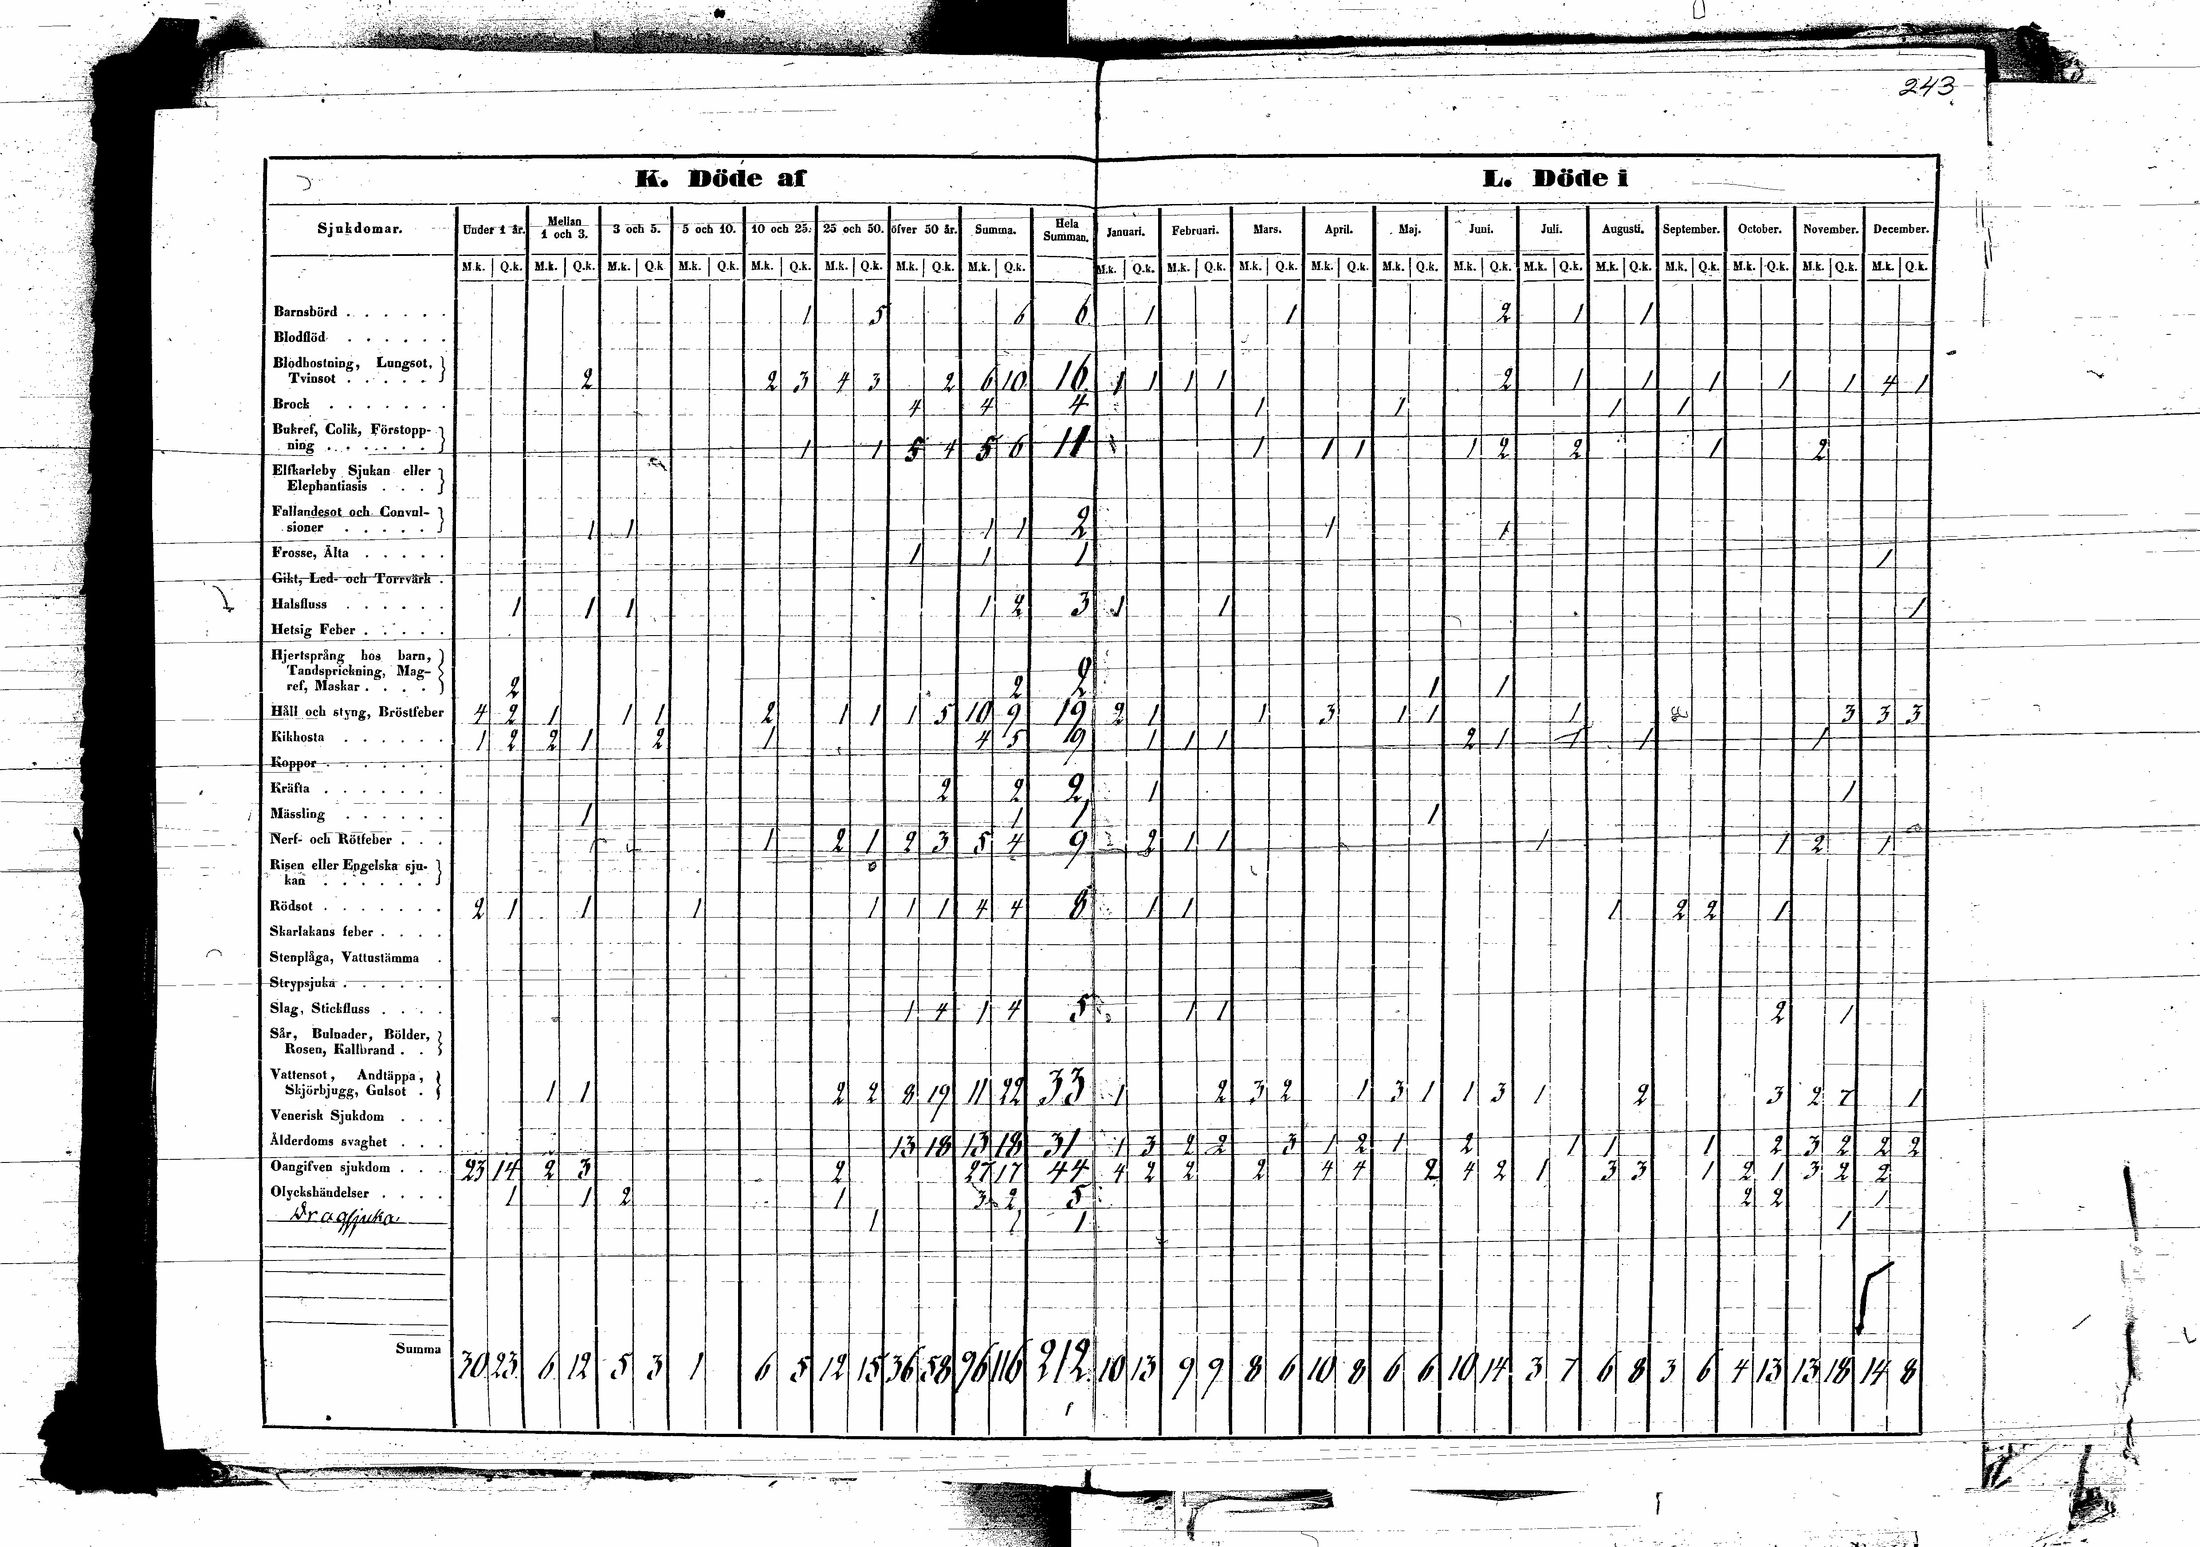 243
K. Döde af L. Döde i
Sjukdomar. Under 1 år. Mellan 1 och 3. 3 och 5. 5 och 10. 10 och 25. 25 och 50. öfver 50 år. Summa. Hela Summan. Januari. Februari. Mars. April. Maj. Juni. Juli. Augusti. September. October. November. December.
M.k. Q.k. M.k. Q.k. M.k. Q.k. M.k. Q.k. M.k. Q.k. M.k. Q.k. M.k. Q.k. M.k. Q.k. M.k. Q.k. M.k. Q.k. M.k. Q.k. M.k. Q.k. M.k. Q.k. M.k. Q.k. M.k. Q.k. M.k. Q.k. M.k. Q.k. M.k. Q.k. M.k. Q.k. M.k. Q.k.
Barnsbörd 1 5 6 6 1 1 2 1 1
Blodflöd
Blodhostning, Lungsot,
Tvinsot 2 2 3 4 3 2 6 10 16 1 1 1 1 2 1 1 1 1 1 4 1
Brock 4 4 4 1 1 1 1
Bukref, Colik, Förstopp-
ning 1 1 5 4 5 6 11 1 1 1 1 2 2 1 2
Elfkarleby Sjukan eller
Elephantiasis
Fallandesot och Convul-
sioner 1 1 1 1 2 1 1
Frosse, Älta 1 1 1 1
Gikt, Led- och Torrvärk
Halsfluss 1 1 1 1 2 3 1 1 1
Hetsig Feber
Hjertsprång hos barn,
Tandsprickning, Mag-
ref, Maskar 2 2 2 1 1
Håll och styng, Bröstfeber 4 2 1 1 1 2 1 1 1 5 10 9 19 2 1 1 3 1 1 1 3 3 3
Kikhosta 1 2 2 1 2 1 4 5 9 1 1 1 2 1 1 1 1
Koppor
Kräfta 2 2 2 1 1
Mässling 1 1 1 1
Nerf- och Rötfeber 1 2 1 2 3 5 4 9 2 1 1 1 1 2 1
Risen eller Engelska sju-
kan
Rödsot 2 1 1 1 1 1 1 4 4 8 1 1 1 2 2 1
Skarlakans feber
Stenplåga, Vattustämma
Strypsjuka
Slag, Stickfluss 1 4 1 4 5 1 1 2 1
Sår, Bulnader, Bölder,
Rosen, Kallbrand
Vattensot, Andtäppa,
Skjörbjugg, Gulsot 1 1 2 2 8 19 11 22 33 1 2 3 2 1 3 1 1 3 1 2 3 2 7 1
Venerisk Sjukdom
Ålderdoms svaghet 13 18 13 18 31 1 3 2 2 3 1 2 1 2 1 1 1 2 3 2 2 2
Oangifven sjukdom 23 14 2 3 2 27 17 44 4 2 2 2 4 4 2 4 2 1 3 3 1 2 1 3 2 2
Olyckshändelser 1 1 2 1 3 2 5 2 2 1
Dragsjuka 1 1 1 1
Summa 30 23 6 12 5 3 1 6 5 12 15 36 58 96 116 212 10 13 9 9 8 6 10 8 6 6 10 14 3 7 6 8 3 6 4 13 13 18 14 8